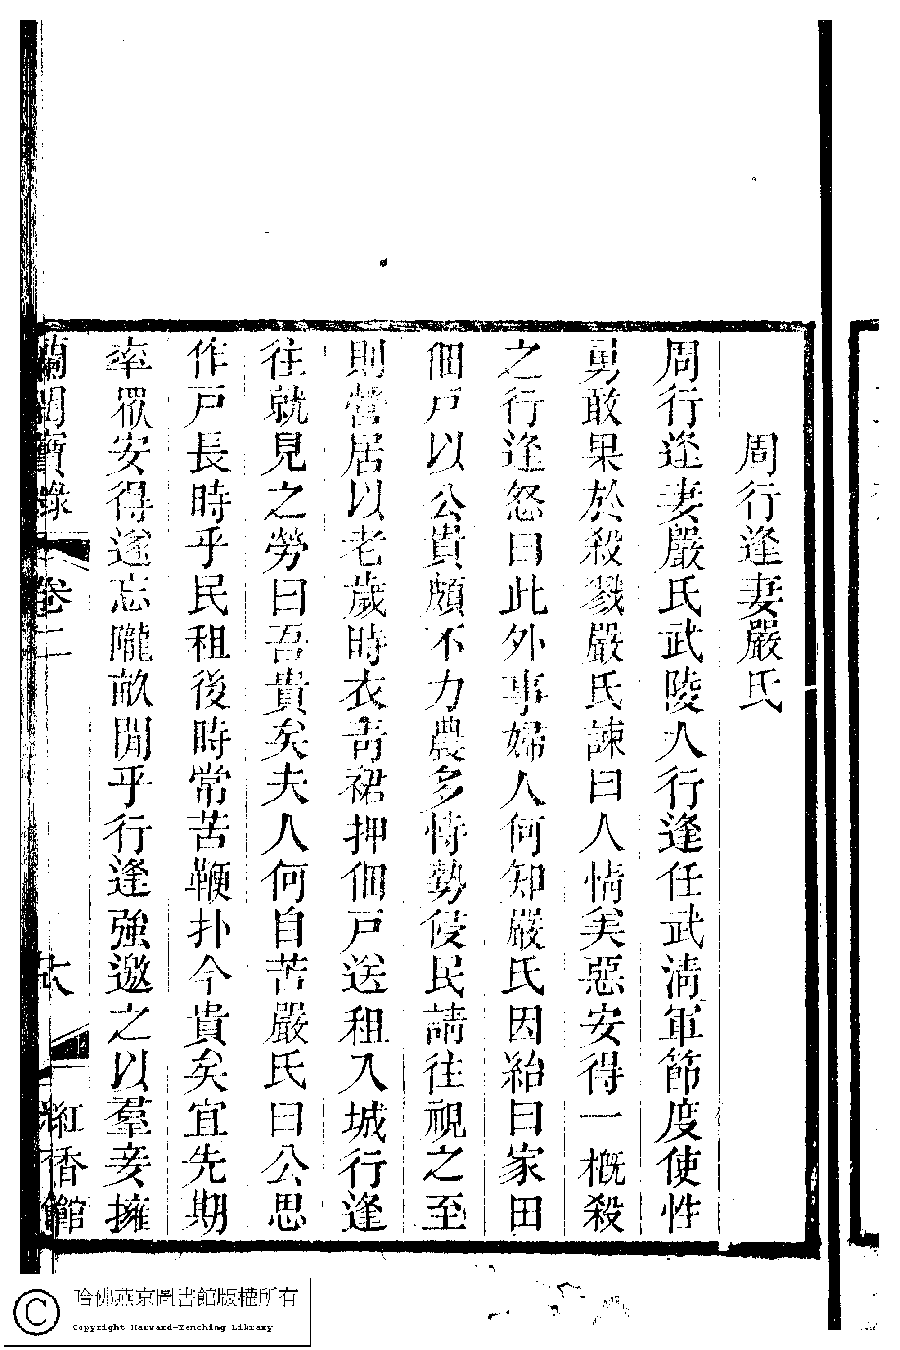 周行逢妻嚴氏
周行逢妻嚴氏武陵人行逢任武清軍節度使性
勇敢果於殺戮嚴氏諫曰人情矣惡安得一概殺
之行逢怒曰此外事婦人何知嚴氏因紿曰家田
佃戶以公貴頗不力農多恃勢侵民請往視之至
則營居以老歲時衣靑裙押佃戶送租入城行逢
往就見之勞曰吾貴矣夫人何自苦嚴氏曰公思
作戶長時乎民租後時常苦鞭扑今貴矣宜先期
率眾安得遂忘隴畝閒乎行逢強邀之以羣妾擁
蘭閨寶錄 卷二 紅香館
哈佛燕京圖書館版權所有
Copyright Harvard-Yenching Library